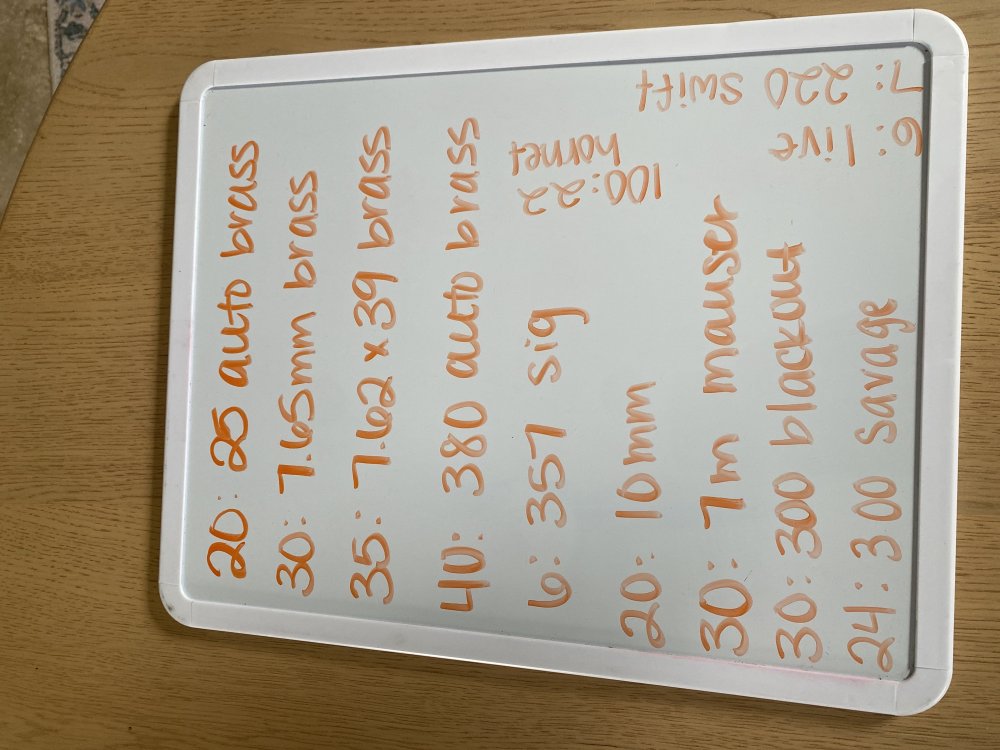 20: 25 auto brass
30: 7.65mm brass
35: 7.62 x 39 brass
40: 380 auto brass
6: 357 sig
20: 10mm
30: 7m mauser
30: 300 blackout
24: 300 savage
7: 220 swift
6: live
100: 22
hornet